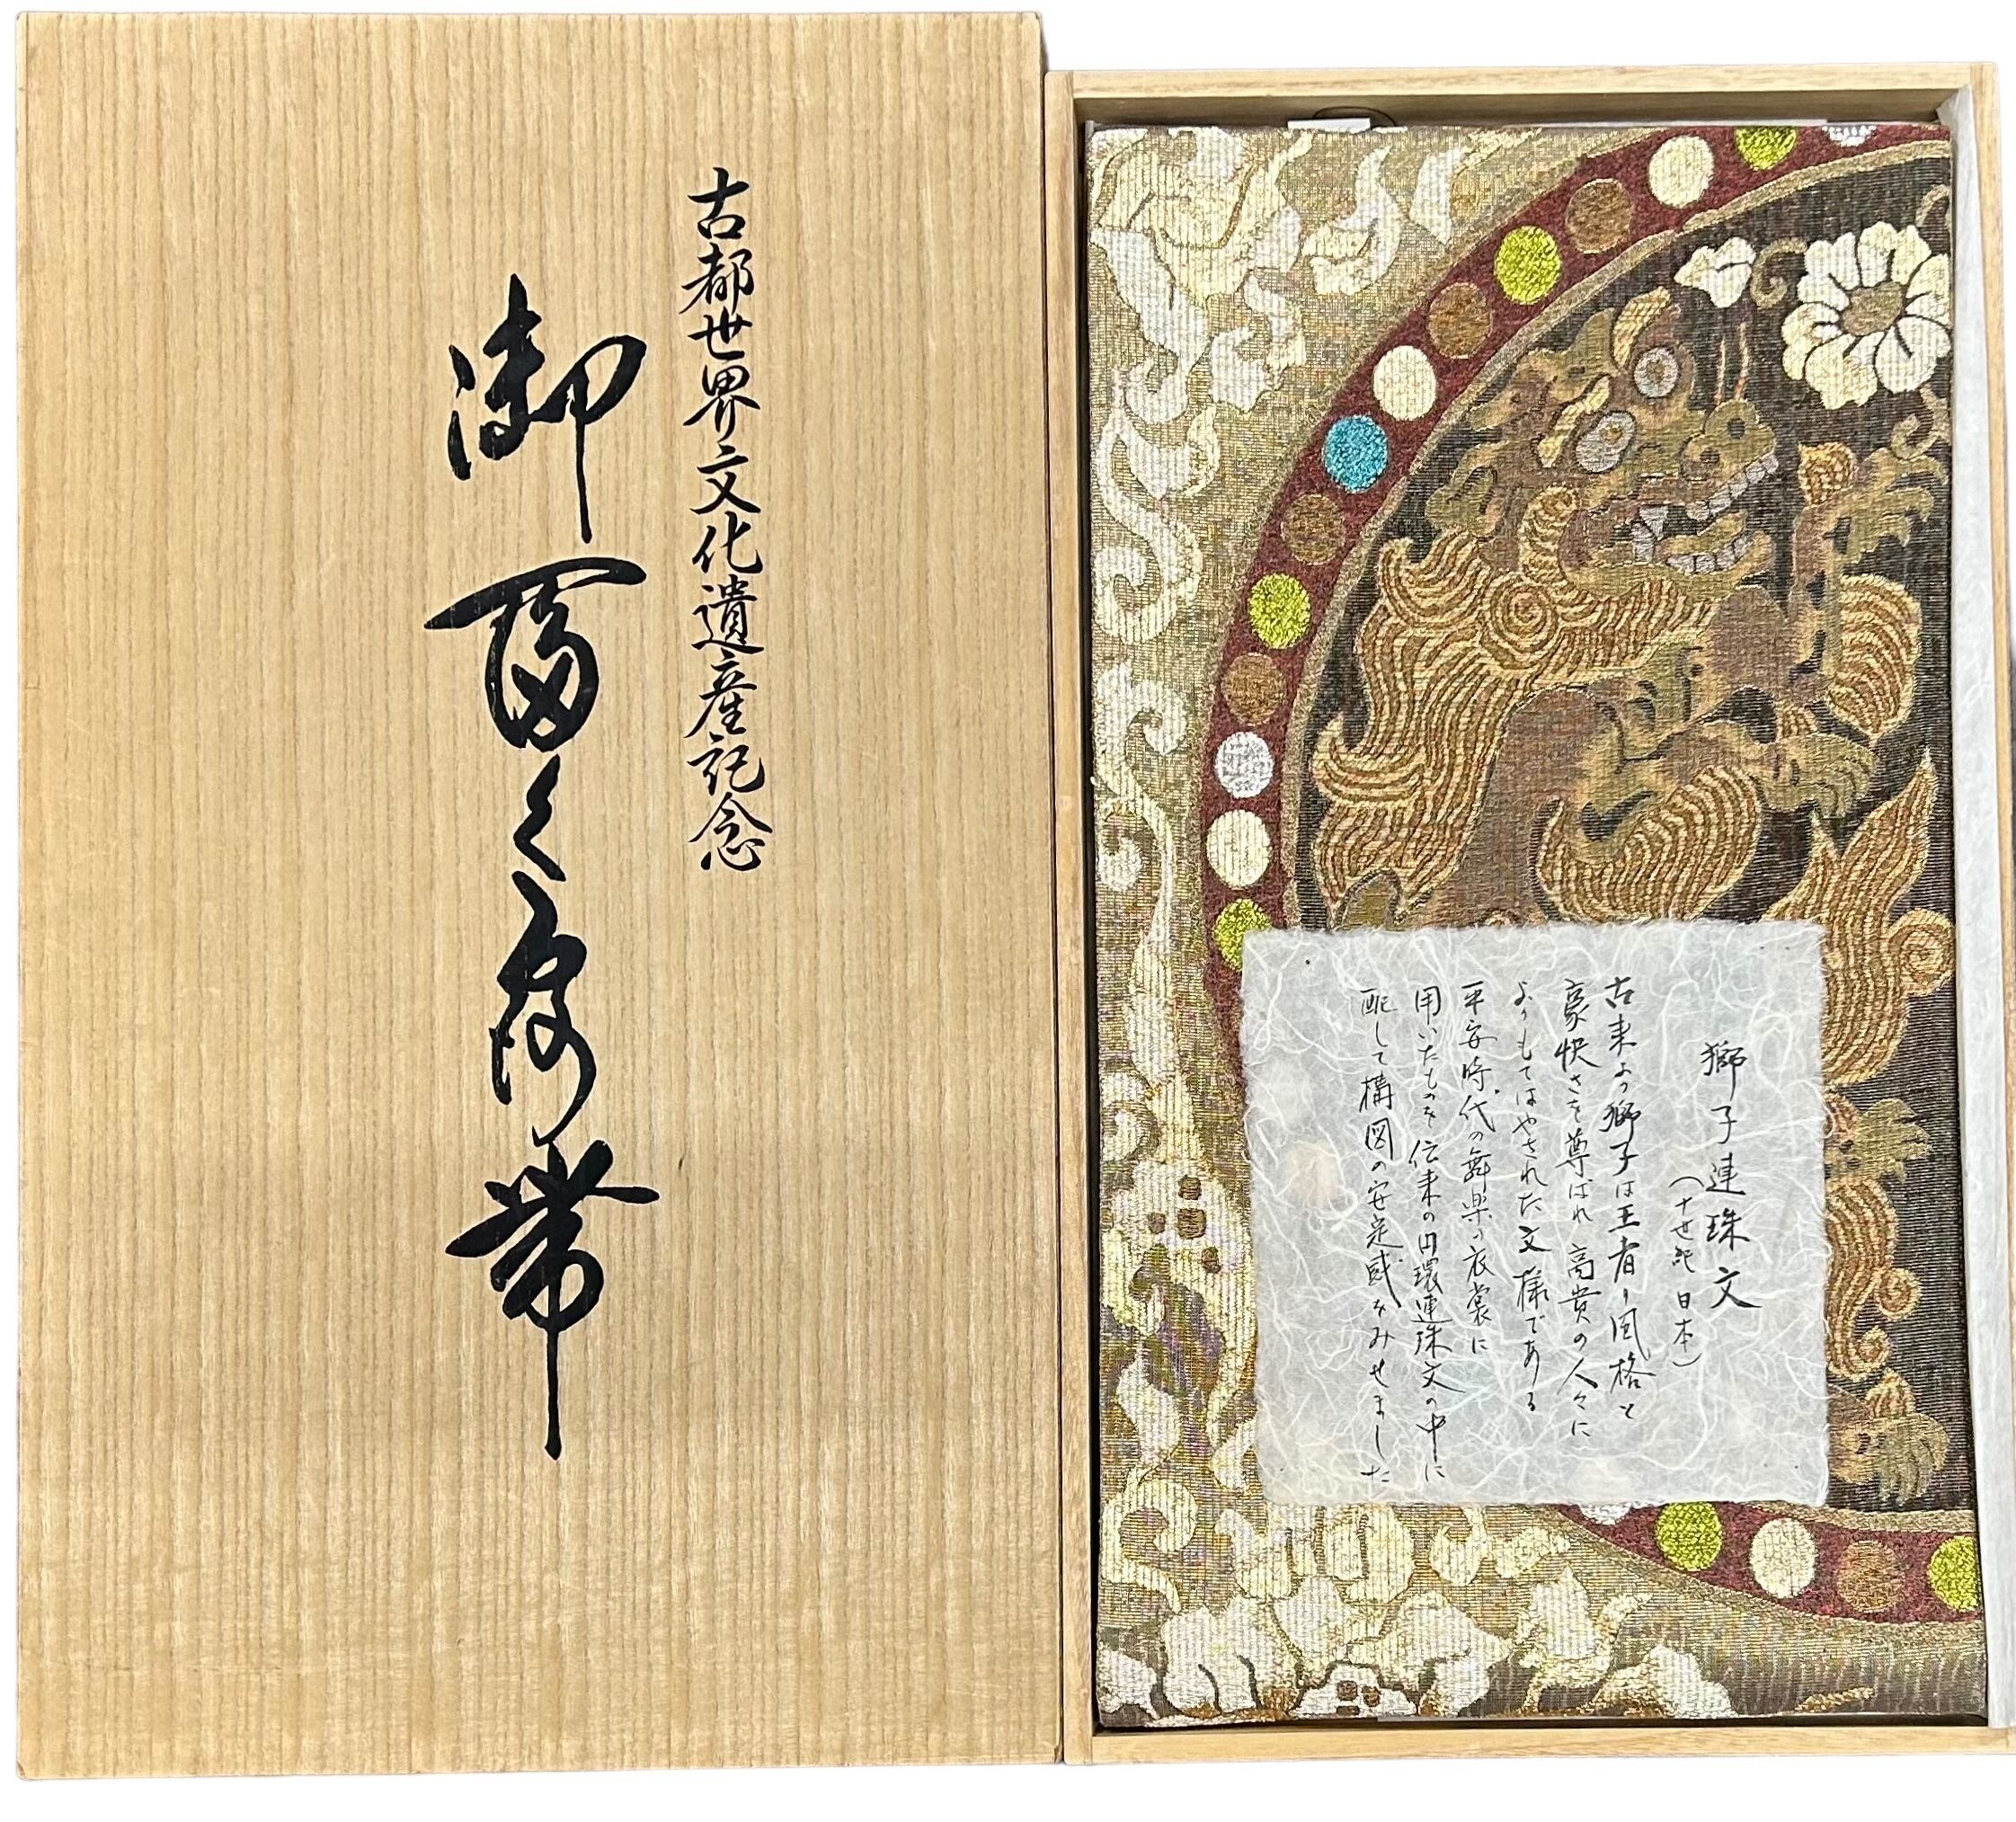 古都世界文化遺産記念
御富く路帯
獅子連珠文
(十世紀 日本)
古来より獅子は王者の風格と
豪快さを尊ばれ高貴の人々に
よりもてはやされた文様である
平安時代の舞楽の衣裳に
用いたものを伝来の円環連珠文の中に
配して構図の安定感をみせました